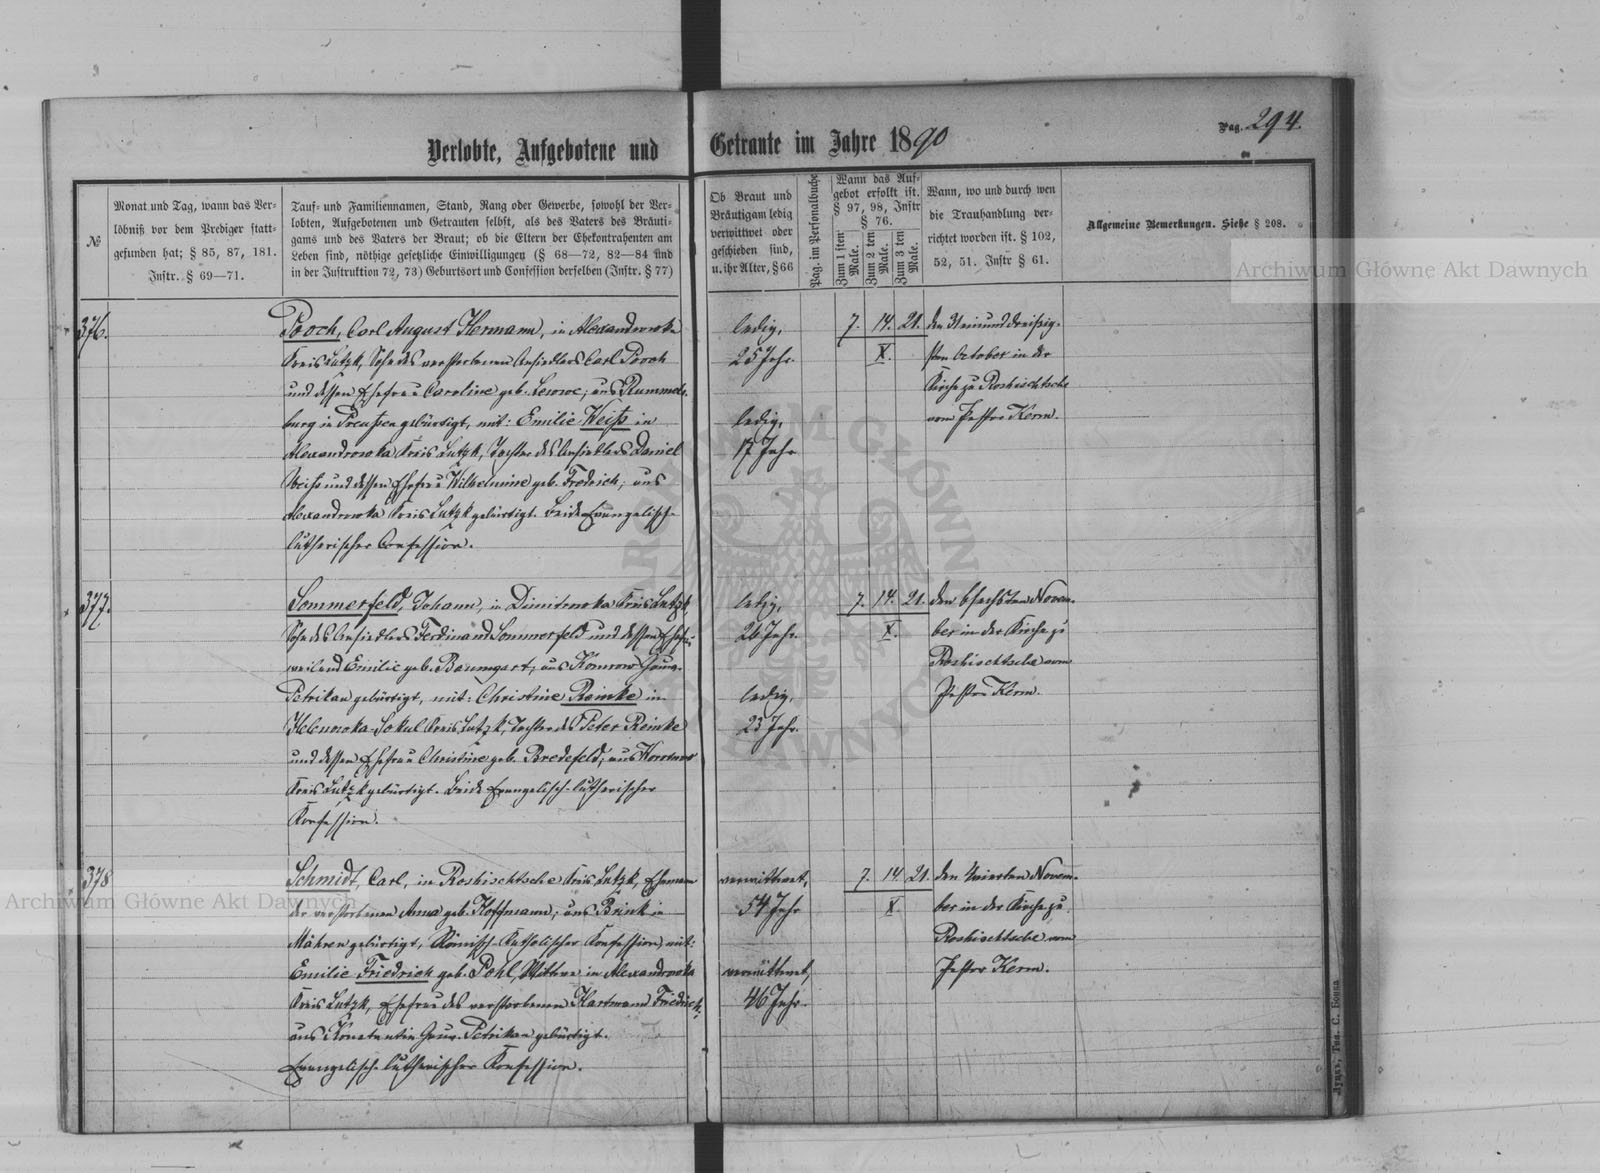 Verlobte, Aufgebotene und Getraute im Jahre 1890
Pag. 294.
№
Monat und Tag, wann das Ver-
löbniß vor dem Prediger statt-
gefunden hat; § 85, 87, 181.
Instr. § 69—71.
Tauf- und Familiennamen, Stand, Rang oder Gewerbe, sowohl der Ver-
lobten, Aufgebotenen und Getrauten selbst, als des Vaters des Bräuti-
gams und des Vaters der Braut; ob die Eltern der Ehekontrahenten am
Leben sind, nöthige gesetzliche Einwilligungen (§ 68—72, 82—84 und
in der Instruktion 72, 73) Geburtsort und Confession derselben (Instr. § 77)
Ob Braut und
Bräutigam ledig
verwittwet oder
geschieden sind,
u. ihr Alter, § 66
Pag. im Personalbuche
Wann das Auf-
gebot erfolkt ist.
§ 97, 98, Instr
§ 76.
Zum 1 sten Male.
Zum 2 ten Male.
Zum 3 ten Male.
Wann, wo und durch wen
die Trauhandlung ver-
richtet worden ist. § 102,
52, 51. Instr § 61.
Allgemeine Bemerkungen. Siehe § 208.
376.
Pooch, Carl August Hermann, in Alexandrowka
Kreis Lutzk, Sohn des verstorbenen Ansiedlers Carl Pooch
und dessen Ehefrau Caroline geb. Lewwe; aus Rummels-
burg in Preußen gebürtigt, mit: Emilie Weiß in
Alexandrowka Kreis Lutzk, Tochter des Ansiedlers Daniel
Weiß und dessen Ehefrau Wilhelmine geb. Fredrich; aus
Alexandrowka Kreis Lutzk gebürtigt. Beide Evangelisch-
lutherischer Confession.
ledig,
25 Jahr.
ledig,
17 Jahr
7. 14. 21.
X.
den Neinunddreißig-
sten October in der
Kirche zu Roshischtsche
vom Pastor Kerm.
377.
Sommerfeld, Johann, in Dimitrowka Kreis Lutzk,
Sohn des Ansiedlers Ferdinand Sommerfeld und dessen Ehefrau
weiland Emilie geb. Baumgart; aus Komrow Gouv.
Petrikau gebürtigt, mit: Christine Reinke in
Helenowka-Sokul Kreis Lutzk, Tochter des Peter Reinke
und dessen Ehefrau Christine geb. Bredefeld; aus
Kreis Lutzk gebürtigt. Beide Evangelisch-lutherischer
Konfession.
ledig,
26 Jahr.
ledig,
23 Jahr.
7. 14. 21.
X.
den Novem-
ber in der Kirche zu
Roshischtsche vom
Pastor Kerm.
378
Schmidt, Carl, in Roshischtsche Kreis Lutzk, Ehemann
der verstorbenen Anna geb. Hoffmann; aus Brink in
Mähren gebürtigt, Römisch-Katholischer Konfession, mit:
Emilie Friedrich geb. Pohl, Wittwe in Alexandrowka
Kreis Lutzk, Ehefrau des verstorbenen Hartmann Friedrich,
aus Konstantin Gouv. Petrikau gebürtigt.
Evangelisch-lutherischer Konfession.
verwittwet,
54 Jahr
verwittwet,
46 Jahr.
7. 14. 21.
X.
den Vierten Novem-
ber in der Kirche zu
Roshischtsche vom
Pastor Kerm.
Луцкъ, Тип. С. Бонка
Archiwum Główne Akt Dawnych
Archiwum Główne Akt Dawnych
ARCHIWUM GŁÓWNE AKT DAWNYCH